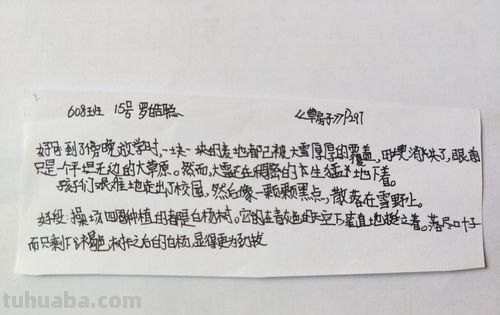 608班 15号 罗皓聪 《草房子》P297
好句:到了傍晚放学时,一块一块的麦地都已被大雪厚厚的覆盖,田埂消失了,眼前
只是一个平坦无边的大草原。然而,大雪还在稠密地下着。
孩子们艰难地走出了校园,然后像一颗颗黑点,散落在雪野上。
好段:操场四周种植的都是白杨树,它们在青灰色的天空下,笔直地挺立着。落尽叶子
而只剩下褐色树枝之后的白杨,显得更为劲拔
tuhuaba.com